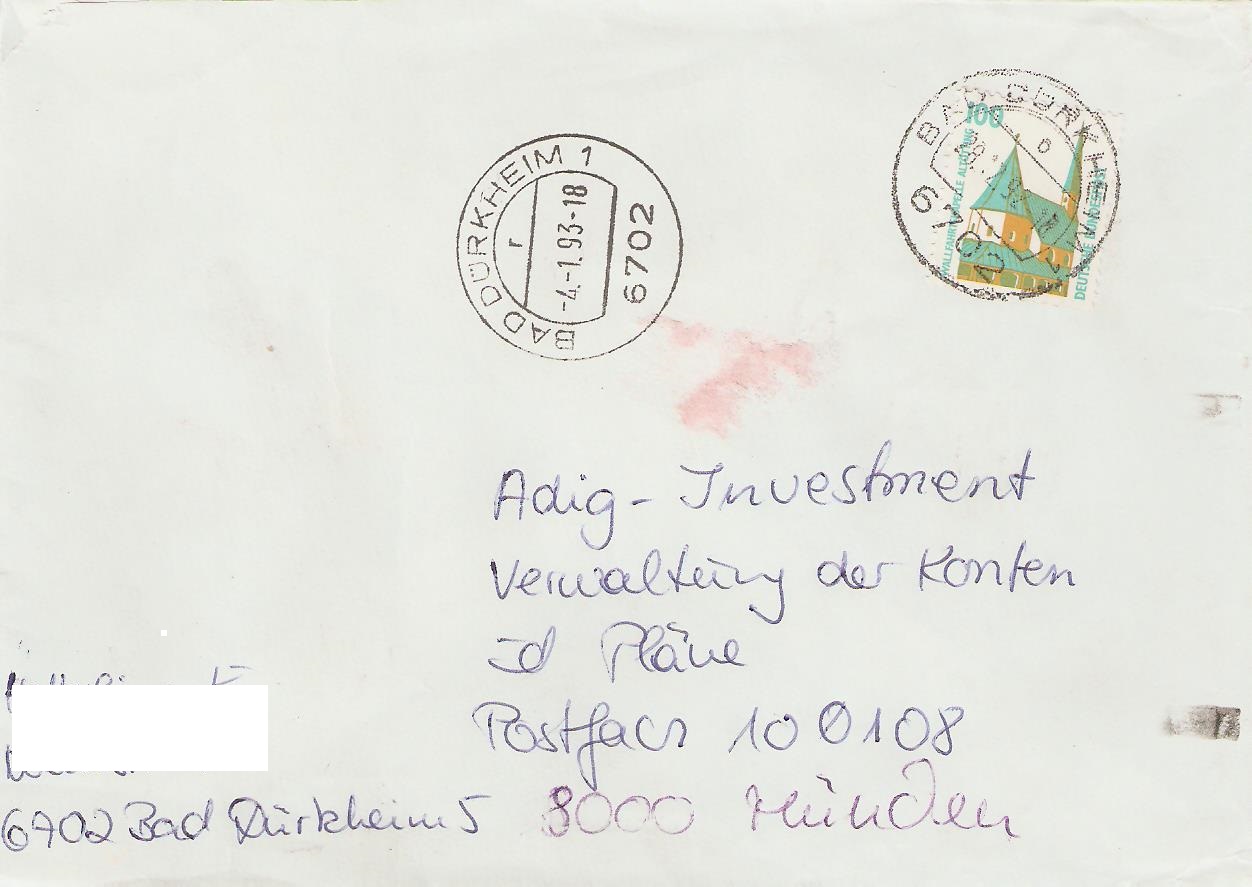 BAD DÜRKHEIM 1
r
-4.-1.93-18
6702
BAD DÜRKHEIM
6702
100
WALLFAHRTSKAPELLE ALTÖTTING
DEUTSCHE BUNDESPOST
Adig-Investment
Verwaltung der Konten
Pläne
Postfach 100108
8000 München
6702 Bad Dürkheim 5